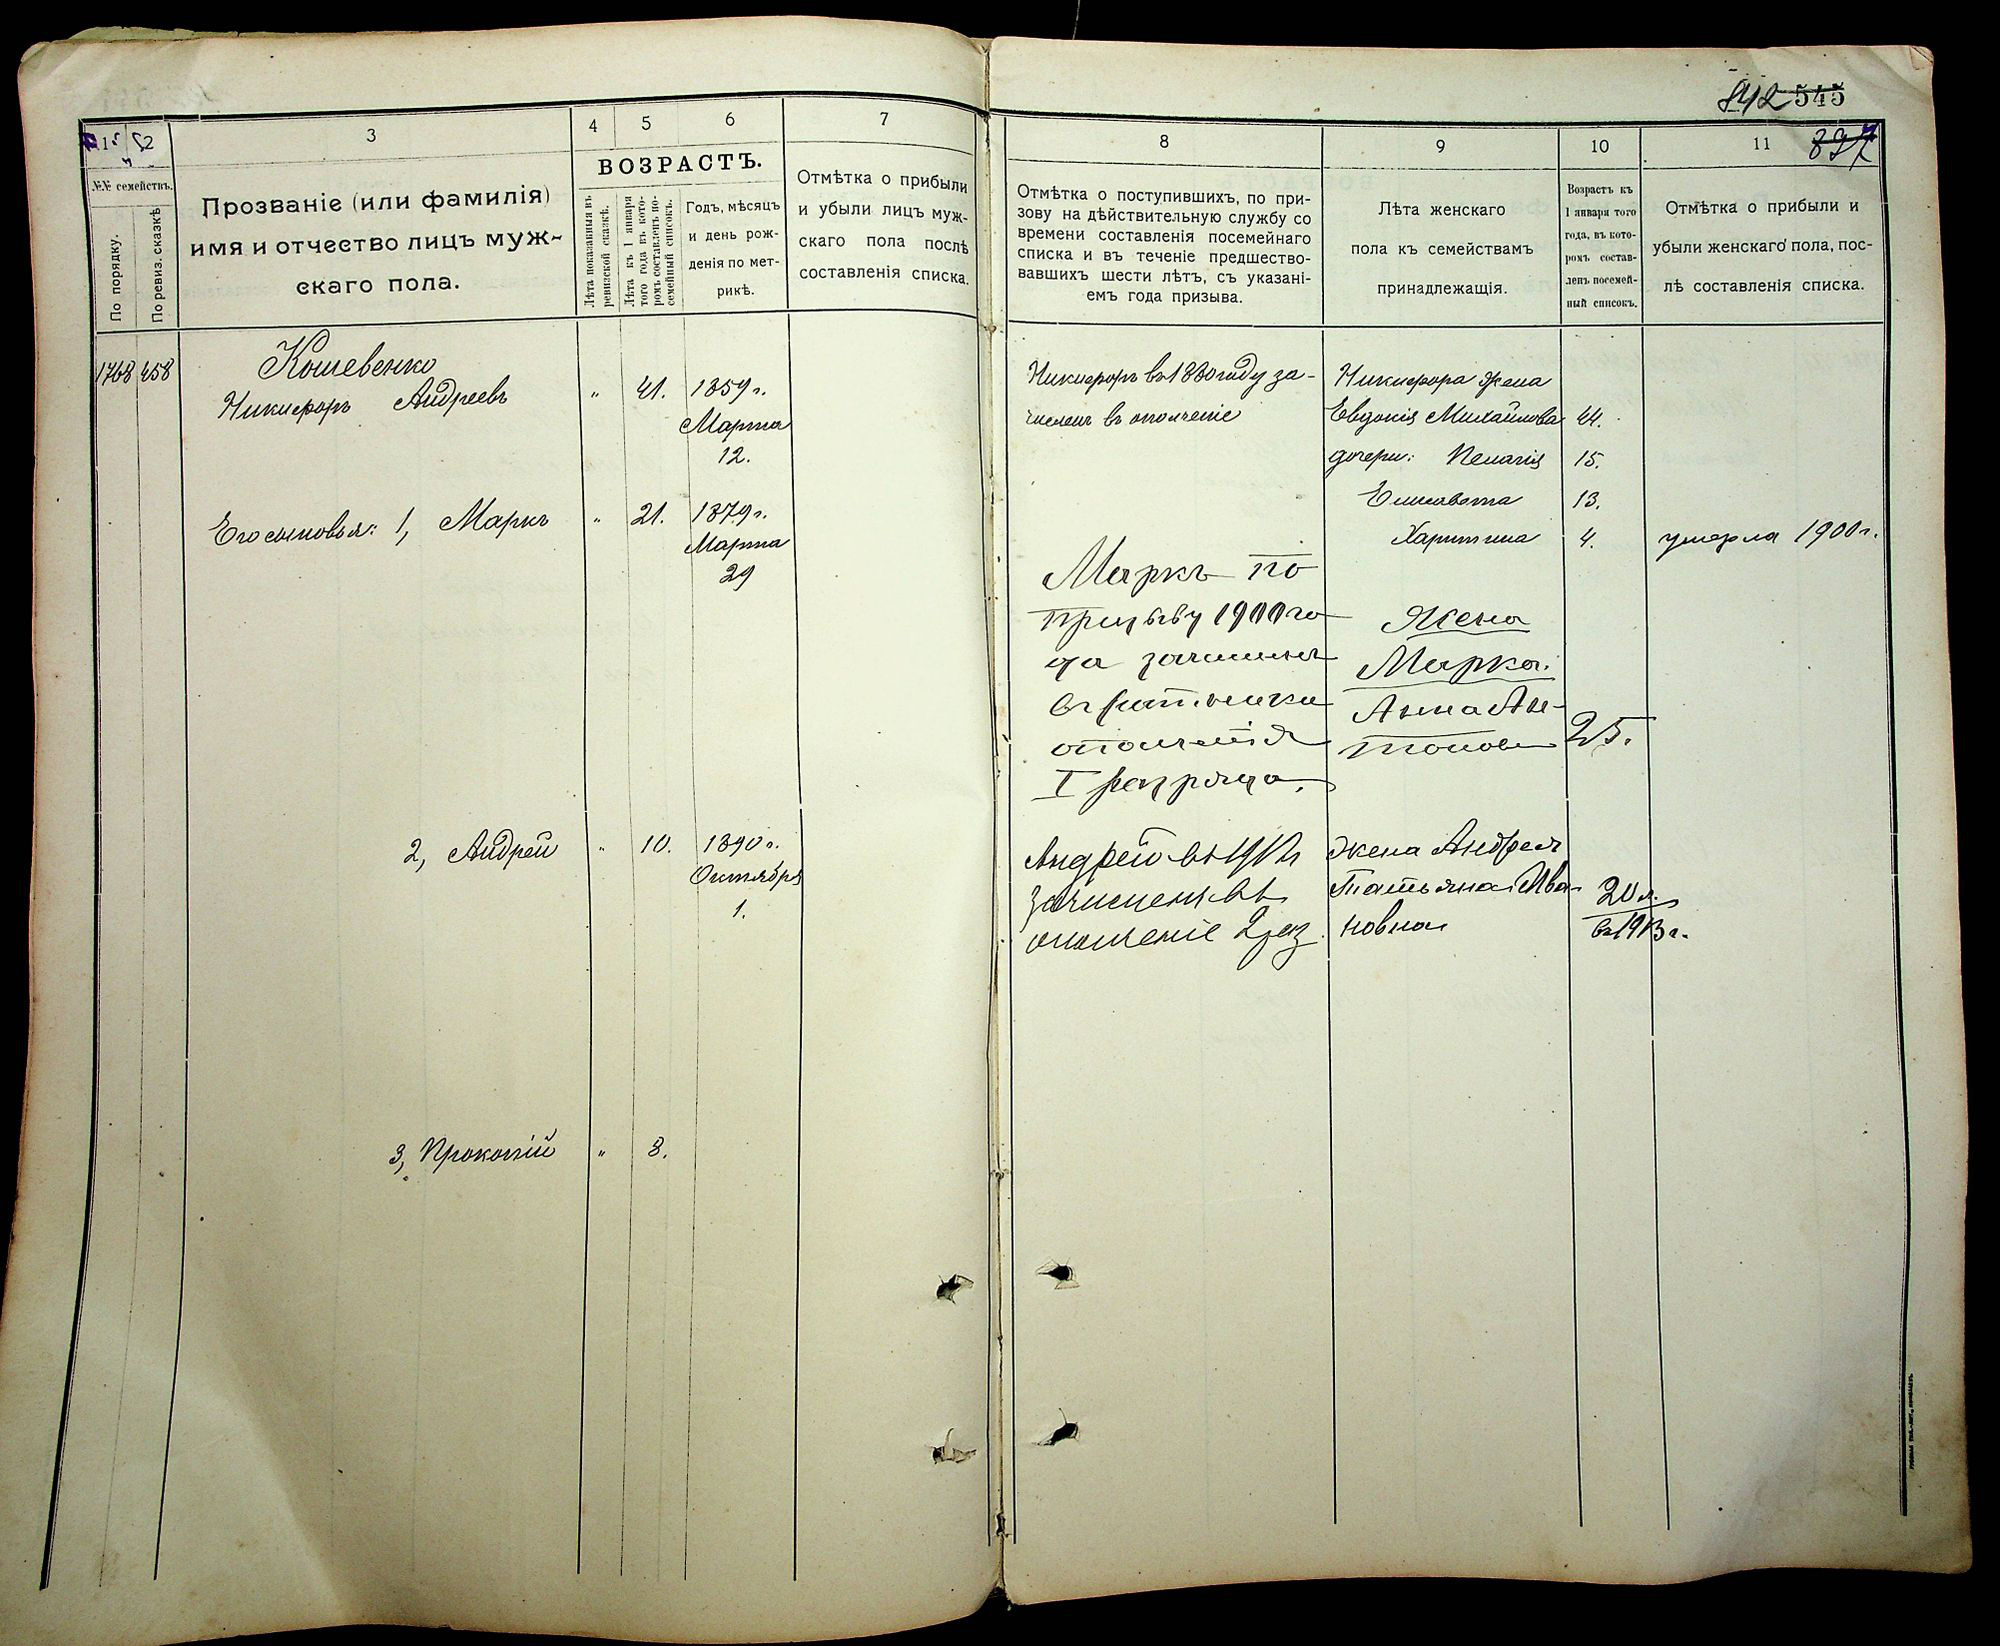 1 2
№№ семействъ.
По порядку.
По ревиз. сказкѣ
3
Прозваніе (или фамилія)
имя и отчество лицъ муж-
скаго пола.
4 5 6
ВОЗРАСТЪ.
Лѣта показанныя въ
ревизской сказкѣ.
Лѣта къ 1 января
того года въ кото-
ромъ составленъ по-
семейный списокъ.
Годъ, мѣсяцъ
и день рож-
денія по мет-
рикѣ.
7
Отмѣтка о прибыли
и убыли лицъ муж-
скаго пола послѣ
составленія списка.
1768 458
Кошевенко
Никифоръ Андреевъ " 41. 1859 г.
Марта
12.
Его сыновья: 1, Маркъ " 21. 1879 г.
Марта
29
2, Андрей " 10. 1890 г.
Октября
1.
3, Прокопій " 8.
842 545
837
8
Отмѣтка о поступившихъ, по при-
зову на дѣйствительную службу со
времени составленія посемейнаго
списка и въ теченіе предшество-
вавшихъ шести лѣтъ, съ указані-
емъ года призыва.
9
Лѣта женскаго
пола къ семействамъ
принадлежащія.
10
Возрастъ къ
1 января того
года, въ кото-
ромъ состав-
ленъ посемей-
ный списокъ.
11
Отмѣтка о прибыли и
убыли женскаго пола, пос-
лѣ составленія списка.
Никифоръ въ 1880 году за-
численъ въ ополченіе
Никифора жена
Евдокія Михайлова 44.
дочери: Пелагія 15.
Елисавета 13.
Харитина 4. умерла 1900 г.
Маркъ по
призыву 1900 го
да зачисленъ
въ ратники
ополченія
I разряда.
Жена
Марка:
Анна Ан-
тонова 25.
Андрей въ 1912 г
зачисленъ въ
ополченіе 2 раз.
жена Андрея
Татьяна Ива-
новна
20 л.
въ 1913 г.